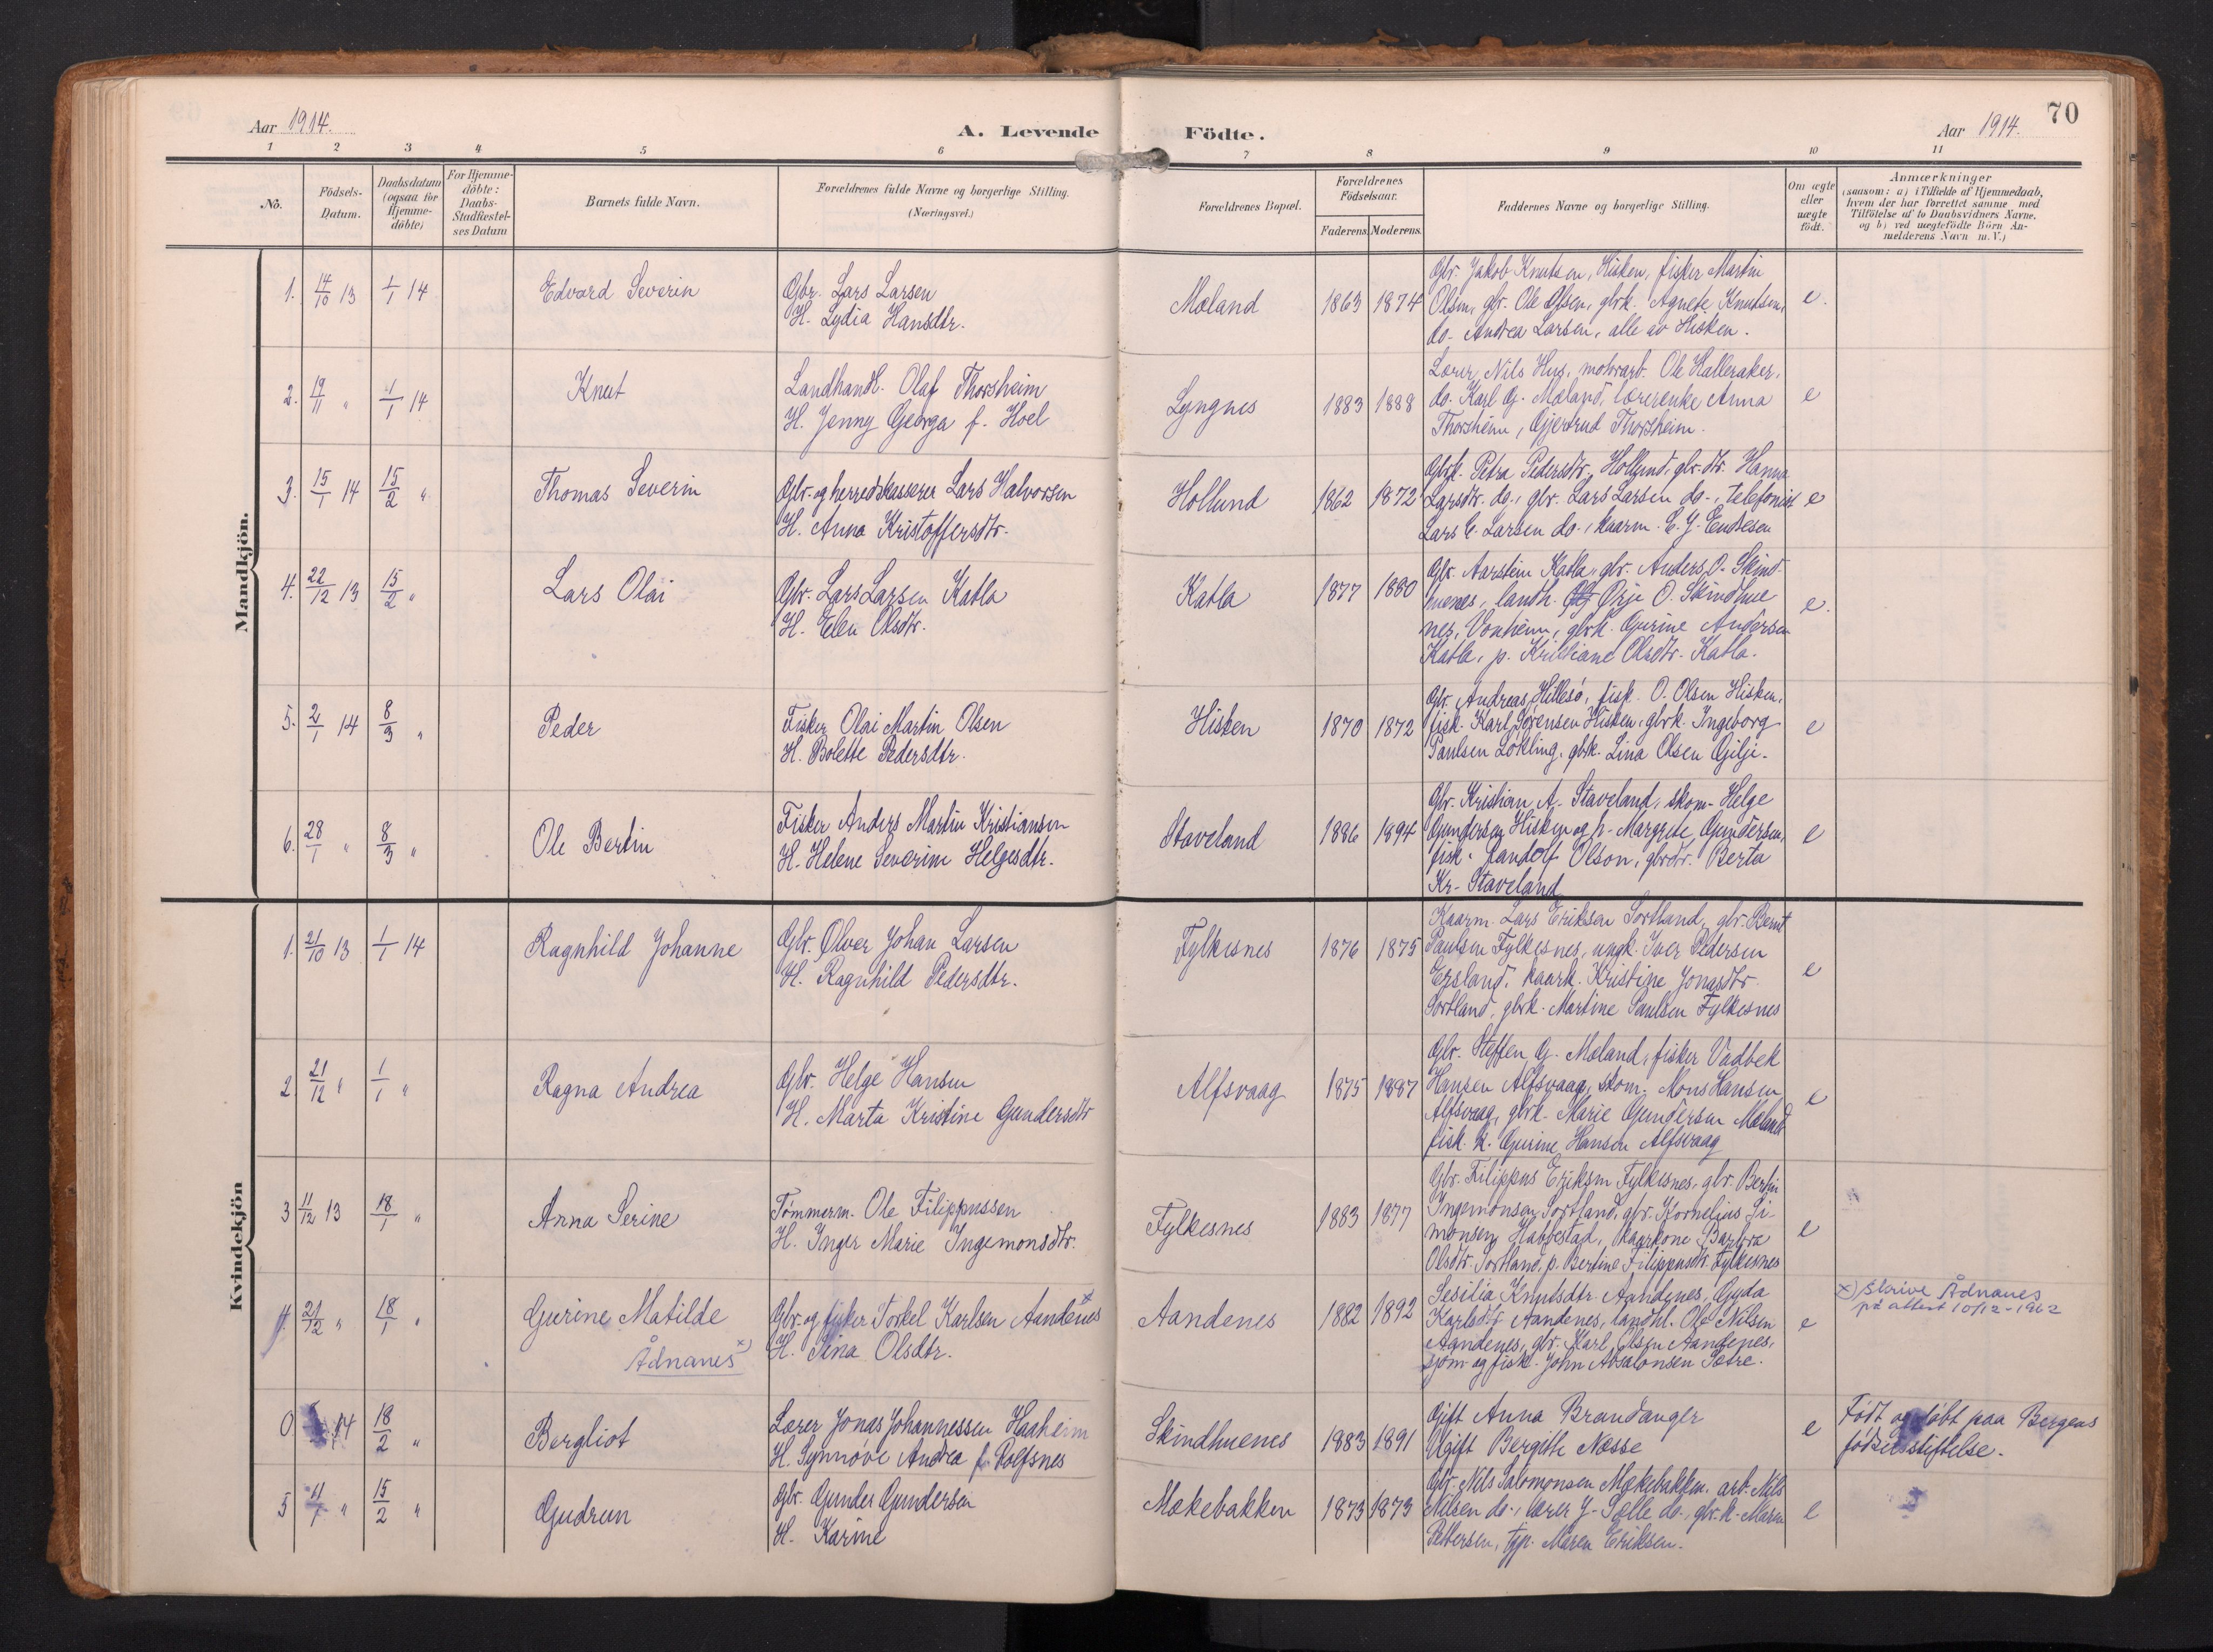 Aar 1914.
A. Levende Födte.
Aar 1914.
70
1 2 3 4 5 6 7 8 9 10 11
No.
Födsels-
Datum.
Daabsdatum
(ogsaa for
Hjemme-
döbte)
For Hjemme-
döbte:
Daabs-
Stadfæstel-
ses Datum
Barnets fulde Navn.
Forældrenes fulde Navne og borgerlige Stilling.
(Næringsvei.)
Forældrenes Bopæl.
Forældrenes
Födselsaar.
Faderens. Moderens.
Faddernes Navne og borgerlige Stilling.
Om ægte
eller
uægte
födt.
Anmærkninger
(saasom: a) i Tilfælde af Hjemmedaab,
hvem der har forrettet samme med
Tilföielse af to Daabsvidners Navne,
og b) ved uægtefödte Börn An-
melderens Navn m. V.)
Mandkjön.
1. 14/10 13 1/1 14 Edvard Severin
Gbr. Lars Larsen
H. Lydia Hansdtr.
Moland 1863 1874
Gbr. Jakob Knutsen, Hisken, fisker Martin
Olsen, gbr. Ole Olsen, gbrk. Agnete Knutsen,
do. Andrea Larsen, alle av Hisken.
e.
2. 19/11 " 1/1 14 Knut
Landhandl. Olaf Thorsheim
H. Jenny Georga f. Hoel
Lyngnes 1883 1888
Lærer Nils Hus, motorarb. Ole Halleraker,
do. Karl G. Moland, lærerenke Anna
Thorsheim, Gjertrud Thorsheim.
e
3. 15/1 14 15/2 " Thomas Severin
Gbr. og herredskasserer Lars Halvorsen
H. Anna Kristoffersdtr.
Hollund 1862 1872
Gbrk. Petra Pedersdtr. Hollund, gbr. dtr. Hanna
Larsdtr. do., gbr. Lars Larsen do., telefonist
Lars C. Larsen do., kaarm. E. J. Endresen
e
4. 22/12 13 15/2 " Lars Olai
Gbr. Lars Larsen Katla
H. Elen Olsdtr.
Katla 1877 1880
Gbr. Aarstein Katla, gbr. Anders O. Skind-
huenes, landh. Ørje O. Skindhue
nes, Vonheim, gbrk. Gurine Andersen
Katla, p. Kristiane Olsdtr. Katla.
e.
5. 2/1 14 8/3 " Peder
Fisker Olai Martin Olsen
H. Bolette Pedersdtr.
Hisken 1870 1872
Gbr. Andreas Hillesø, fisk. O. Olsen Hisken,
fisk. Karl Sørensen Hisken, gbrk. Ingeborg
Paulsen Løkling, gbrk. Lina Olsen Gilje.
e
6. 28/1 " 8/3 " Ole Bertin
Fisker Anders Martin Kristiansen
H. Helene Severine Helgesdtr.
Staveland 1886 1894
Gbr. Kristian A. Staveland, skom. Helge
Gundersen Hisken og h. Margrete Gundersen,
fisk. Randolf Olson, gbrdtr. Berta
Kr. Staveland
e
Kvindekjön
1. 21/10 13 1/1 14 Ragnhild Johanne
Gbr. Olver Johan Larsen
H. Ragnhild Pedersdtr.
Fylkesnes 1876 1875
Kaarm. Lars Eriksen Sortland, gbr. Bernt
Paulsen Fylkesnes, ungk. Iver Pedersen
Ersland, kaark. Kristine Jonasdtr.
Sortland, gbrk. Martine Paulsen Fylkesnes
e
2. 21/12 " 1/1 " Ragna Andrea
Gbr. Helge Hansen
H. Marta Kristine Gundersdtr
Alfsvaag 1875 1887
Gbr. Steffen G. Moland, fisker Vadbek
Hansen Alfsvaag, skom. Mons Hansen
Alfsvaag, gbrk. Marie Gundersen Moland
fisk. k. Gurine Hansen Alfsvaag
e
3 11/12 13 18/1 " Anna Serine
Tømmerm. Ole Filippussen
H. Inger Marie Ingemonsdtr.
Fylkesnes 1883 1877
Gbr. Filippus Eriksen Fylkesnes, gbr. Bertin
Ingemonsen Sortland, gbr. Kornelius Si-
monsen Habbestad, kaarkone Barbra
Olsdtr. Sortland, p. Bertine Filippusdtr. Fylkesnes
e
4. 21/12 " 18/1 " Gurine Matilde
Ådnanes x)
Gbr. og fisker Torkel Karlsen Aandenes x
H. Sina Olsdtr.
Aandenes 1882 1892
Sesilia Knutsdtr. Aandenes, Gyda
Karlsdtr. Aandenes, landhl. Ole Nilsen
Aandenes, gbr. Karl Olsen Aandenes,
sjøm. og fisk. John Absalonsen Sætre.
e
x) skrive Ådnanes
på attest 10/12-1962
0 14 18/2 " Bergliot
Lærer Jonas Johannessen Haaheim
H. Synnøve Andrea f. Rolfsnes
Skindhuenes 1883 1891
Gift Anna Brandanger
Ugift Bergithe Næsse
e
Født og døbt paa Bergens
fødselsstiftelse.
5 11/1 " 15/2 " Gudrun
Gbr. Gunder Gundersen
H. Karine
Mækebakken 1873 1873
Gbr. Nils Salomonsen Mækebakken, arb. Nils
Nilsen do., lærer J. Sælle do., gbr.k. Maren
Pettersen, tjp. Maren Eriksen.
e